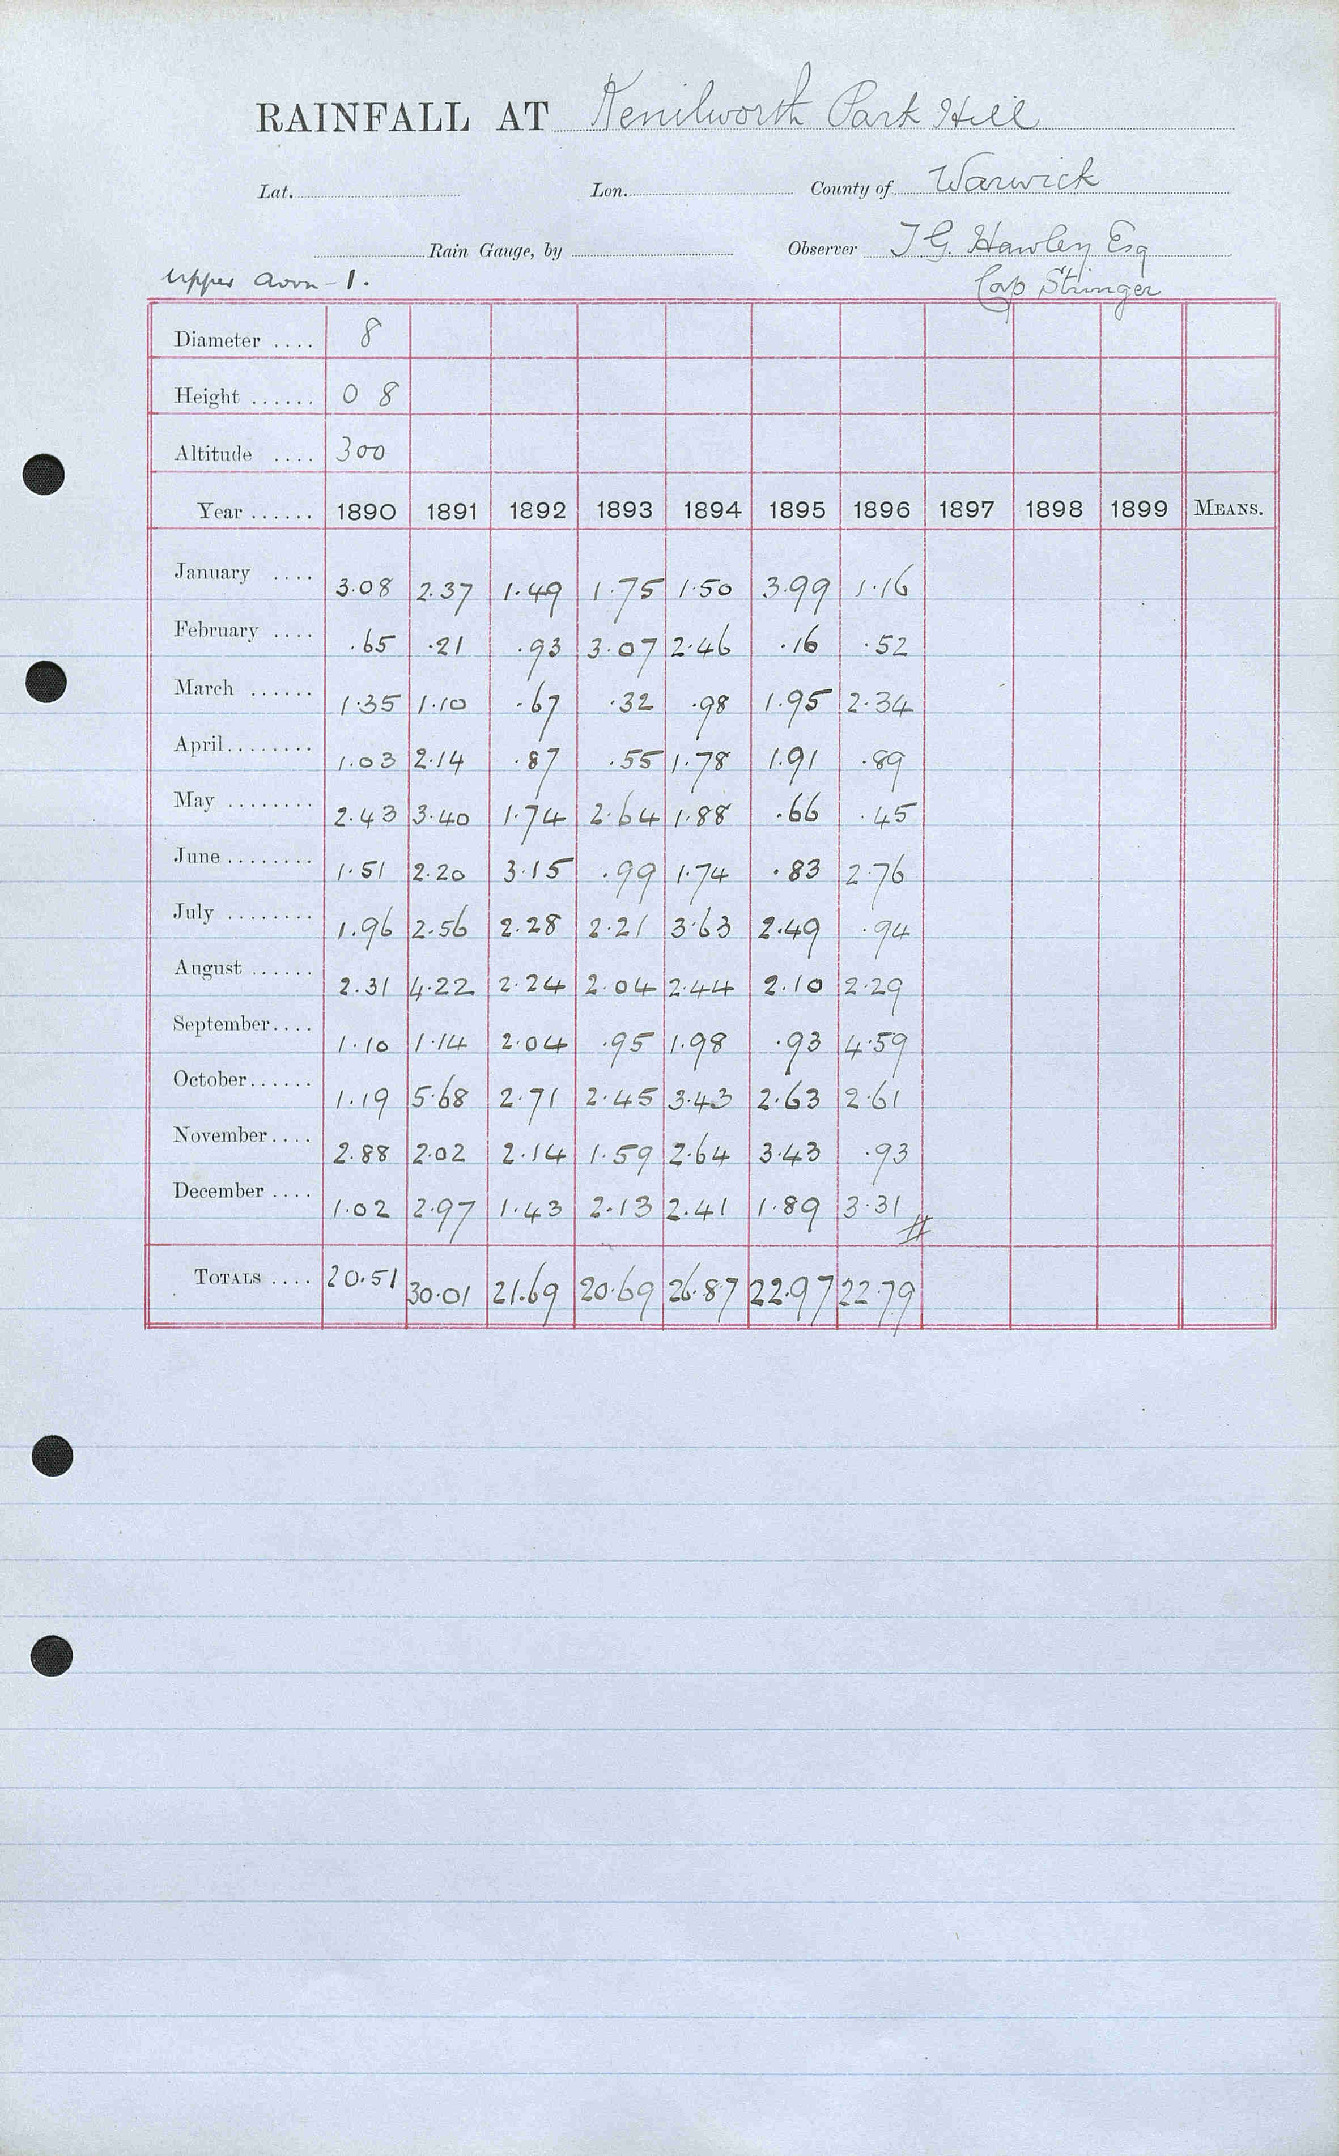 RAINFALL AT Kenilworth Park Hill
Lat. Lon. County of Warwick
Rain Gauge, by Observer T G. Hawley Esq
Upper Avon - 1. Cap Stringer
Diameter .... 8
Height ...... 0 8
Altitude .... 300
Year ...... 1890 1891 1892 1893 1894 1895 1896 1897 1898 1899 MEANS.
January .... 3.08 2.37 1.49 1.75 1.50 3.99 1.16
February .... .65 .21 .93 3.07 2.46 .16 .52
March ...... 1.35 1.10 .67 .32 .98 1.95 2.34
April........ 1.03 2.14 .87 .55 1.78 1.91 .89
May ........ 2.43 3.40 1.74 2.64 1.88 .66 .45
June ........ 1.51 2.20 3.15 .99 1.74 .83 2.76
July ........ 1.96 2.56 2.28 2.21 3.63 2.49 .94
August ...... 2.31 4.22 2.24 2.04 2.44 2.10 2.29
September.... 1.10 1.14 2.04 .95 1.98 .93 4.59
October...... 1.19 5.68 2.71 2.45 3.43 2.63 2.61
November.... 2.88 2.02 2.14 1.59 2.64 3.43 .93
December .... 1.02 2.97 1.43 2.13 2.41 1.89 3.31 #
TOTALS .... 20.51 30.01 21.69 20.69 26.87 22.97 22.79